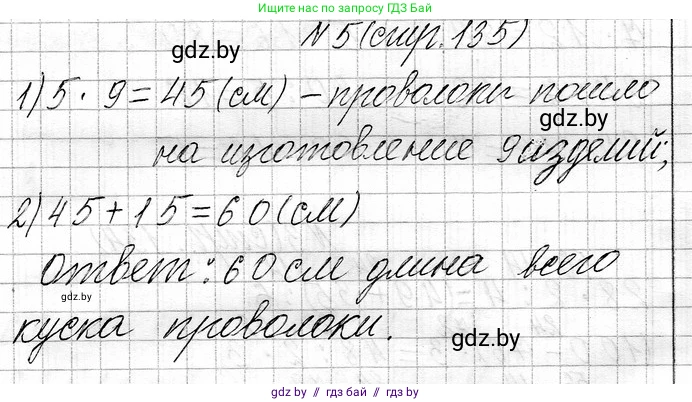 Ищите нас по запросу ГДЗ Бай
N 5 (стр. 135)
gdz.by
1) 5 · 9 = 45 (см) – проволоки пошло
gdz.by
на изготовление 9 изделий;
2) 45 + 15 = 60 (см)
Ответ: 60 см длина всего
gdz.by
куска проволоки.
gdz.by
gdz.by // гдз бай // gdz by